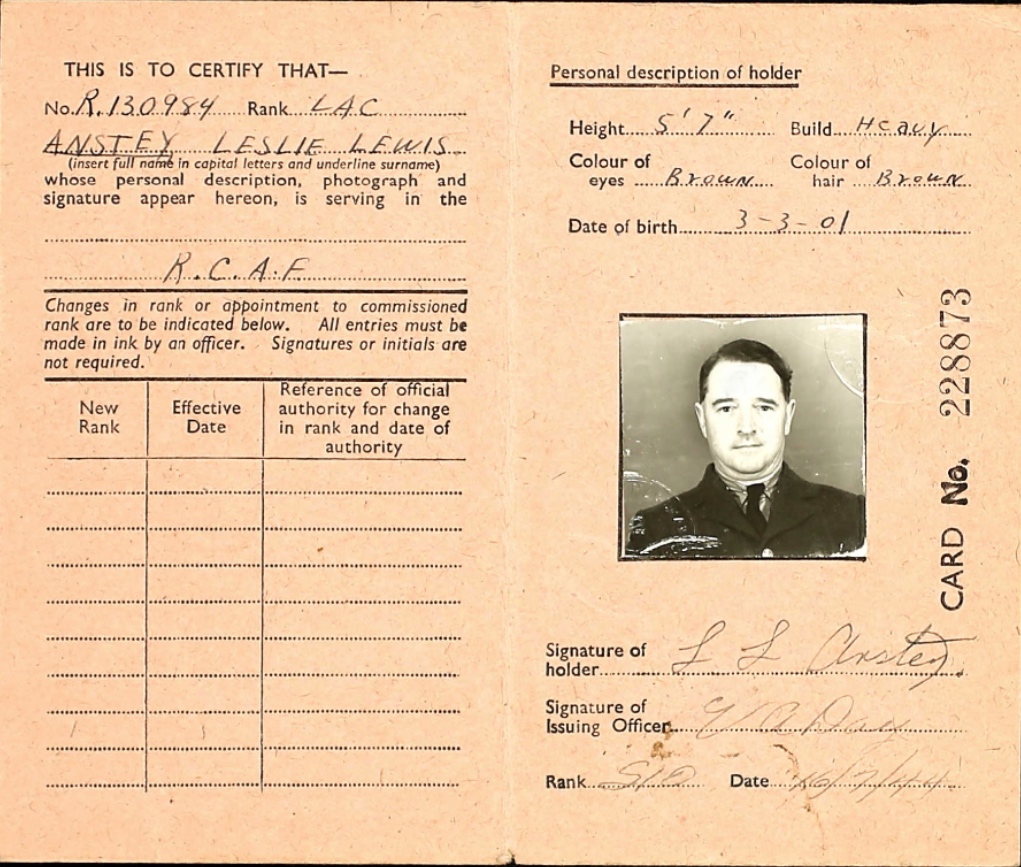 THIS IS TO CERTIFY THAT—
No. R.130984 Rank LAC
ANSTEY LESLIE LEWIS
(insert full name in capital letters and underline surname)
whose personal description, photograph and
signature appear hereon, is serving in the
R.C.A.F
Changes in rank or appointment to commissioned
rank are to be indicated below. All entries must be
made in ink by an officer. Signatures or initials are
not required.
New
Rank
Effective
Date
Reference of official
authority for change
in rank and date of
authority
Personal description of holder
Height 5'7" Build Heavy
Colour of
eyes Brown
Colour of
hair Brown
Date of birth 3-3-01
CARD No. 228873
Signature of
holder L L Anstey
Signature of
Issuing Officer Day
Rank Date